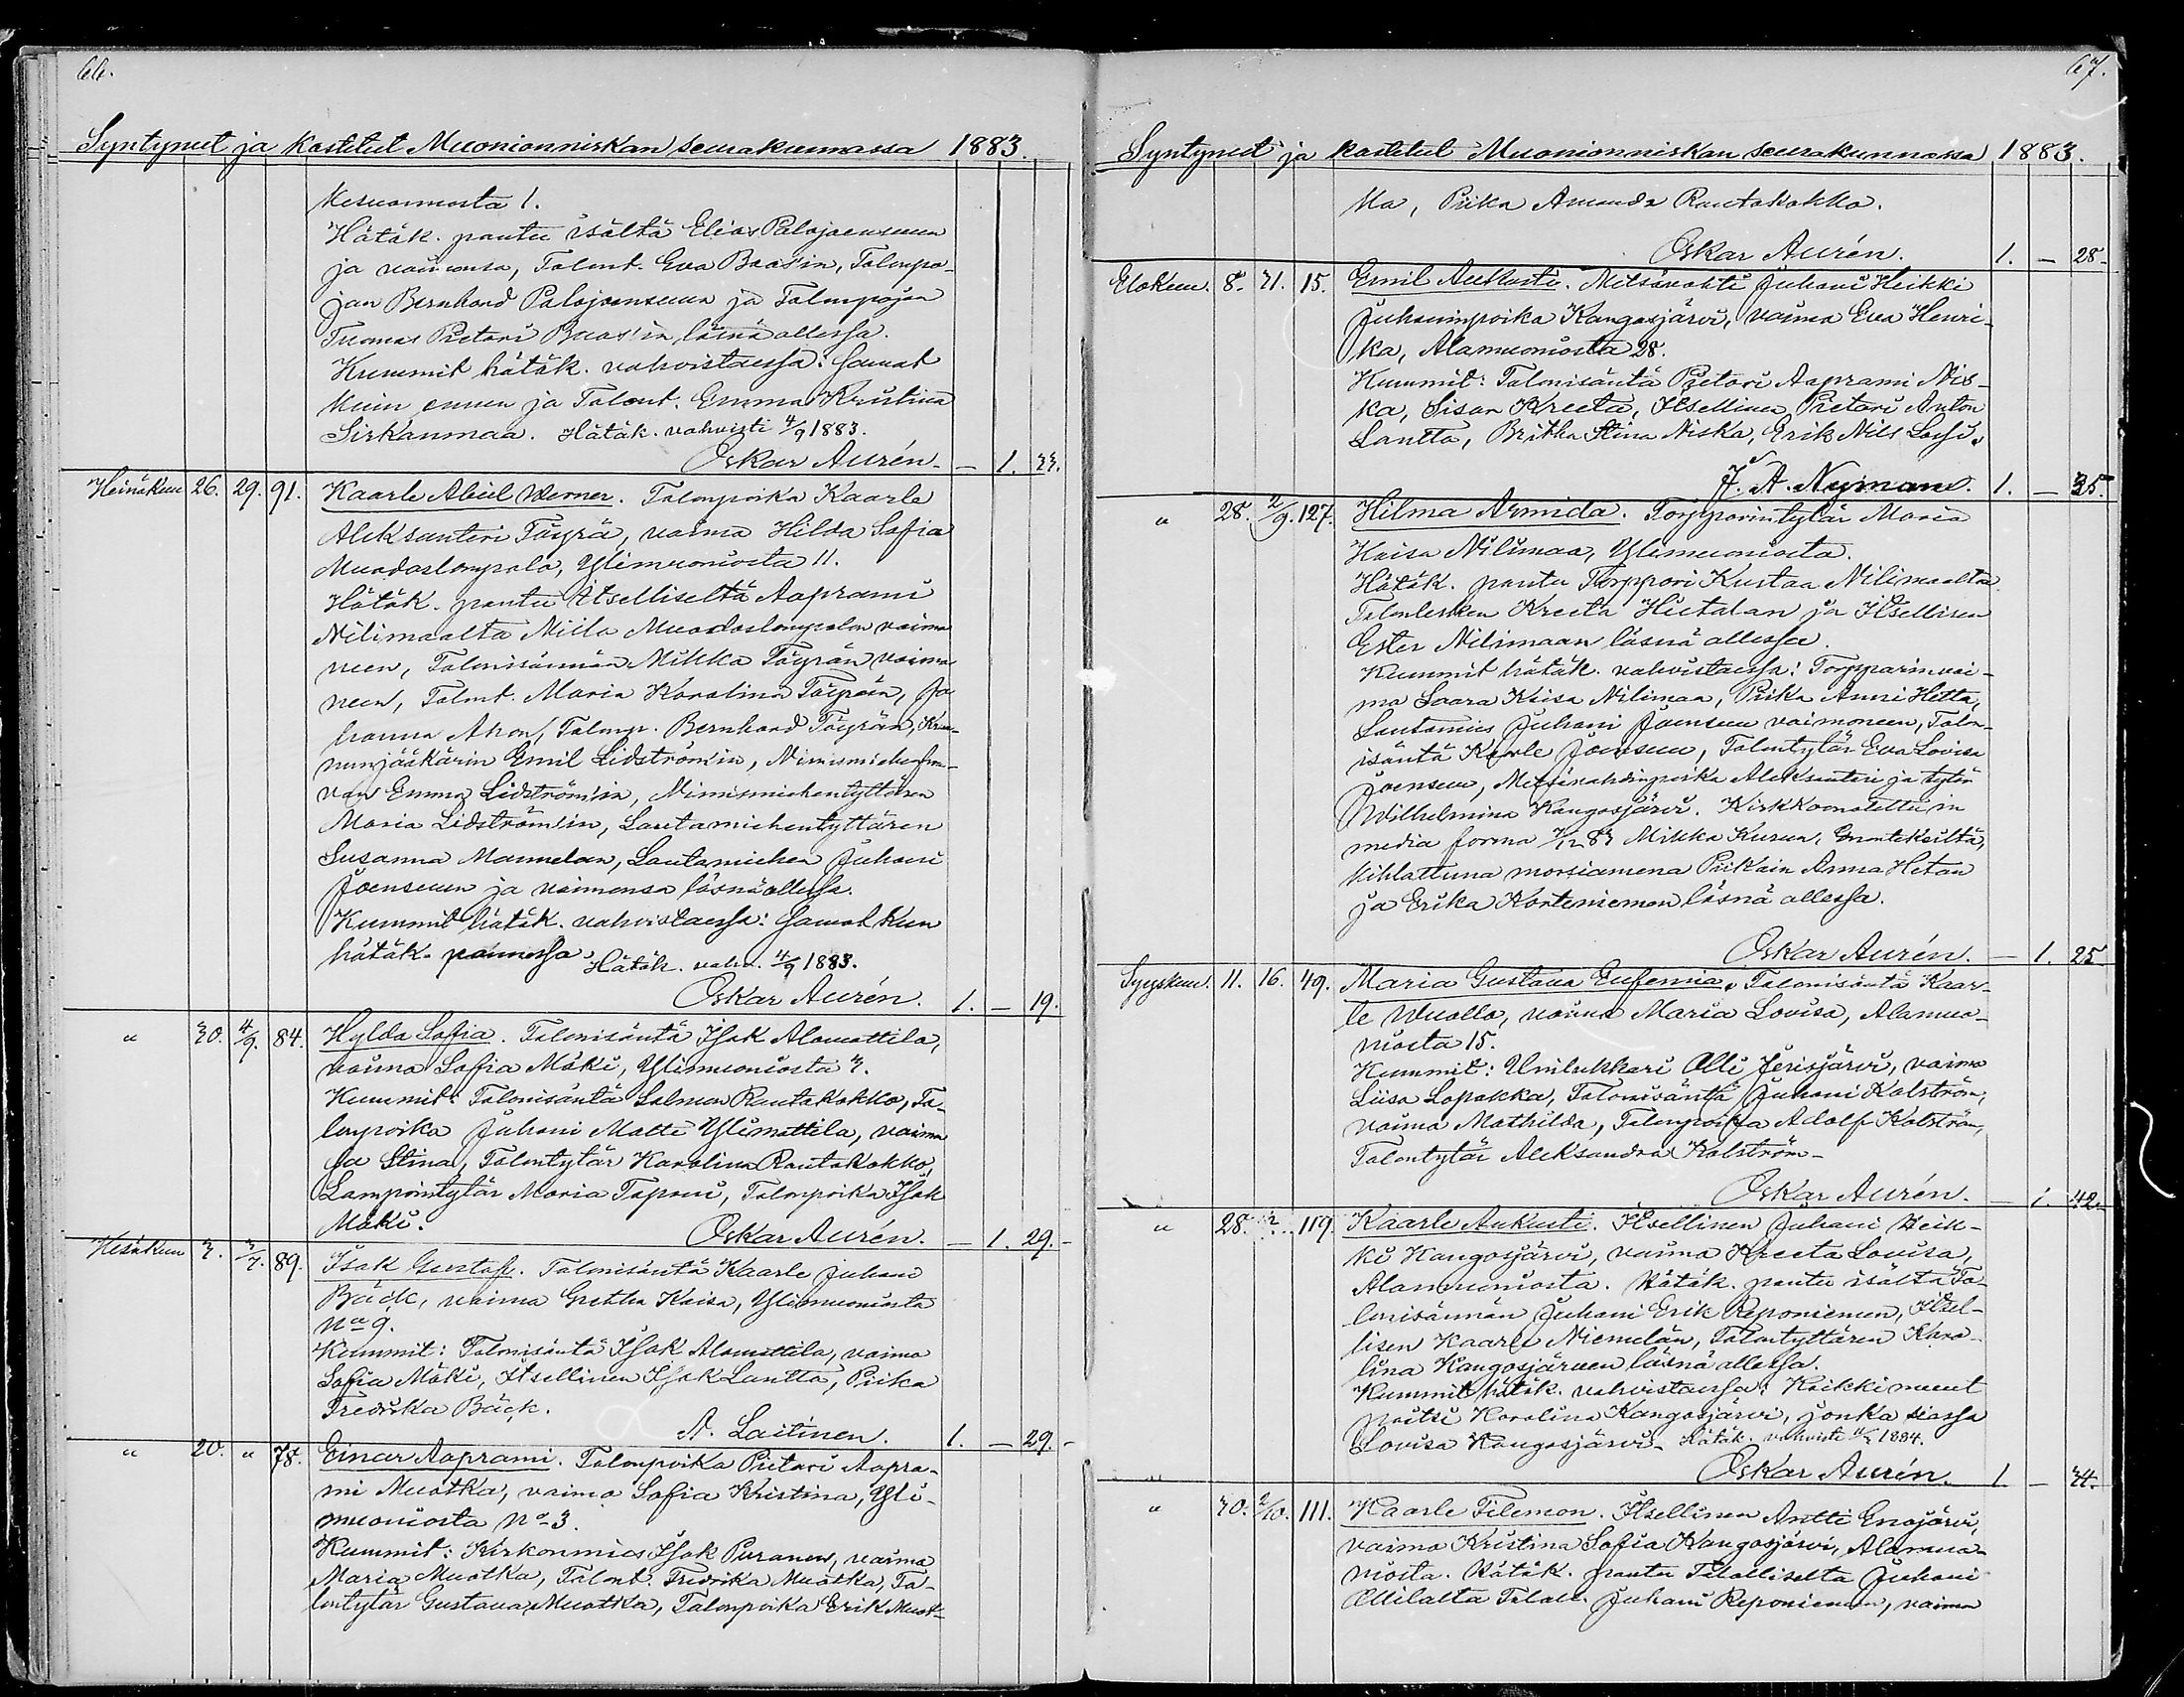 66.
Syntynet ja kastetut Muonionniskan seurakunnassa 1883.
Kesuonnosta 1.
Hätäk. pantu isältä Elias Palojoensuun
ja vaimonsa, Talont. Eva Baasin, Talonpo-
jan Bernhard Palojoensuun ja Talonpojan
Tuomas Pietari Baasin läsnä ollessa.
Kummit hätäk. vahvistaessa: Samat
kuin ennen ja Talont. Emma Kristina
Sirkanmaa. Hätäk. vahvisti 4/9 1883.
Oskar Aurén. — 1. 33.
Heinäkuu 26. 29. 91. Kaarle Abiel Werner. Talonpoika Kaarle
Aleksanteri Töyrä, vaimo Hilda Sofia
Muodoslompolo, Ylimuoniosta 11.
Hätäk. pantu itselliseltä Aaprami
Nilimaalta Niilo Muodoslompolon vaimo
neen, Talonisännän Mikko Töyrän vaimo
neen, Talont. Maria Karolina Töyrän, Jo
hanna Ahon, Talonp. Bernhard Töyrän, Kruu-
nunjääkärin Emil Lidströmin, Nimismiehenfrou-
van Emma Lidströmin, Nimismiehentyttären
Maria Lidströmin, Lautamiehentyttären
Susanna Mannelan, Lautamiehen Juhani
Joensuun ja vaimonsa läsnä ollessa.
Kummit hätäk. vahvistaessa: Samat kun
hätäk. pannessa. Hätäk. vahv. 4/9 1883.
Oskar Aurén. 1. — 19.
" 30. 4/9. 84. Hylda Sofia. Talonisäntä Isak Alamattila,
vaimo Sofia Mäki, Ylimuoniosta 3.
Kummit: Talonisäntä Salmon Rautakokko, Ta-
lonpoika Juhani Matti Ylimattila, vaimo
sa Stina, Talontytär Karolina Rautakokko,
Lamporintytär Maria Tapani, Talonpoika Isak
Mäki. Oskar Aurén. — 1. 29.
Kesäkuu 3. 3/7. 89. Isak Gustaf. Talonisäntä Kaarle Juhani
Bäck, vaimo Gretha Kaisa, Ylimuoniosta
No 9.
Kummit: Talonisäntä Isak Alamattila, vaimo
Sofia Mäki, Itsellinen Isak Lantto, Piika
Fredrika Bäck.
A. Laitinen. 1. — 29.
" 20. " 78. Einar Aaprami. Talonpoika Pietari Aapra-
mi Muotka, vaimo Sofia Kristina, Yli-
muoniosta No 3.
Kummit: Kirkonmies Isak Puranen, vaimo
Maria Muotka, Talont. Fredrika Muotka, Ta-
lontytär Gustava Muotka, Talonpoika Erik Muot-
67.
Syntynet ja kastetut Muonionniskan seurakunnassa 1883.
ka, Piika Amanda Rautakokko.
Oskar Aurén. 1. — 28.
Elokuu. 8. 31. 15. Emil Aukusti. Metsävahti Juhani Heikki
Juhaninpoika Kangosjärvi, vaimo Eva Henri-
ka, Alamuoniosta 28.
Kummit: Talonisäntä Pietari Aaprami Nis-
ka, Sisar Kreeta, Itsellinen Pietari Anton
Lantto, Britha Stina Niska, Erik Nils
J. A. Nyman. 1. — 35.
" 28. 2/9. 127. Hilma Armida. Torpparintytär Maria
Kaisa Nilimaa, Ylimuoniosta.
Hätäk. pantu Torppari Kustaa Nilimaalta
Talonlesken Kreeta Hietalan ja Itsellisen
Ester Nilimaan läsnä ollessa.
Kummit hätäk. vahvistaessa: Torpparinvai-
mo Saara Kaisa Nilimaa, Piika Anni Hetta,
Lautamies Juhani Joensuu vaimoneen, Talon-
isäntä Kaarle Joensuu, Talontytär Eva Lovisa
Joensuu, Metsävahdinpoika Aleksanteri ja tytär
Wilhelmina Kangosjärvi. Kirkkoonotettu in
media forma 83 Mikko Kurun, Enontekiältä,
kihlattuna morsiamena Piikain Anna Hetan
ja Erika Korteniemen läsnä ollessa.
Oskar Aurén. — 1. 25
Syyskuu. 11. 16. 49. Maria Gustava Eufemia. Talonisäntä Kaar-
le Wuollo, vaimo Maria Lovisa, Alamuo-
niosta 15.
Kummit: Unilukkari Olli Jerisjärvi, vaimo
Liisa Lopakka, Talonisäntä Juhani Kolström,
vaimo Mathilda, Talonpoika Adolf Kolström,
Talontytär Aleksandra Kolström.
Oskar Aurén. — 1. 42.
" 28. 119. Kaarle Aukusti. Itsellinen Juhani Heik-
ki Kangosjärvi, vaimo Kreeta Lovisa,
Alamuoniosta. Hätäk. pantu isältä Ta-
lonisännän Juhani Erik Reponiemen, Itsel-
lisen Kaarle Niemelän, Talontyttären Karo-
lina Kangosjärven läsnä ollessa.
Kummit hätäk. vahvistaessa: Kaikki muut
paitsi Karolina Kangosjärvi, jonka siassa
Lovisa Kangosjärvi. Hätäk. vahvisti 1884.
Oskar Aurén. 1. — 34.
" 30. 2/10. 111. Kaarle Filemon. Itsellinen Antti Enojärvi,
vaimo Kristina Sofia Kangosjärvi, Alamuo-
niosta. Hätäk. pantu Tilalliselta Juhani
Ollilalta Tilall. Juhani Reponiemen, vaimo